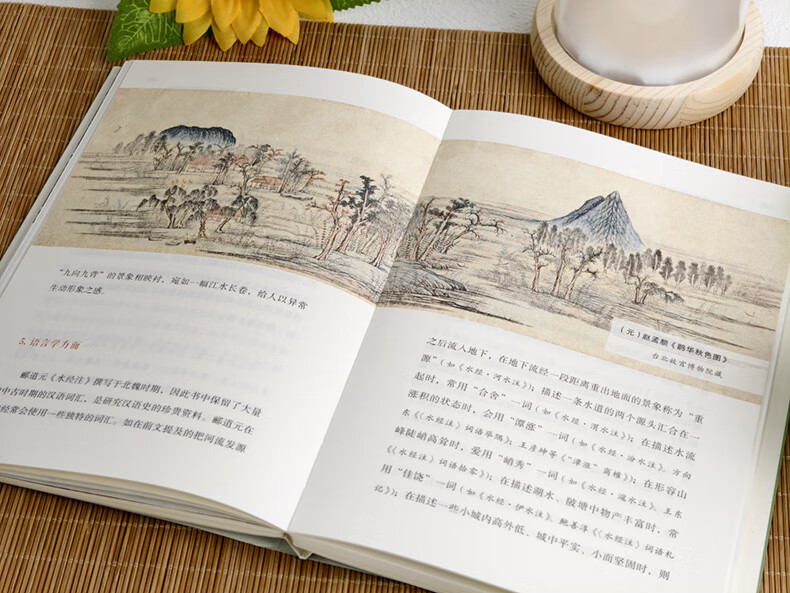 "九向九背"的景象相映衬,宛如一幅江水长卷,给人以异常
生动形象之感。
5. 语言学方面
郦道元《水经注》撰写于北魏时期,因此书中保留了大量
中古时期的汉语词汇,是研究汉语史的珍贵资料。郦道元在
经常会使用一些独特的词汇。如在前文提及的把河流发源
(元)赵孟頫《鹊华秋色图》
台北故宫博物院藏
之后流入地下,在地下流经一段距离重出地面的景象称为"重
源"(如《水经·河水注》);描述一条水道的两个源头汇合在一
起时,常用"合舍"一词(如《水经·渭水注》);在描述水流
涨积的状态时,会用"潭涨"一词(如《水经·汾水注》。方向
东《〈水经注〉词语举隅》;王彦坤等《"潭涨"商榷》);在形容山
峰陡峭高耸时,爱用"峭秀"一词(如《水经·滱水注》。王东
《〈水经注〉词语拾零》);在描述湖水、陂塘中物产丰富时,常
用"佳饶"一词(如《水经·伊水注》。鲍善淳《〈水经注〉词语札
记》);在描述一些小城内高外低、城中平实、小而坚固时,则